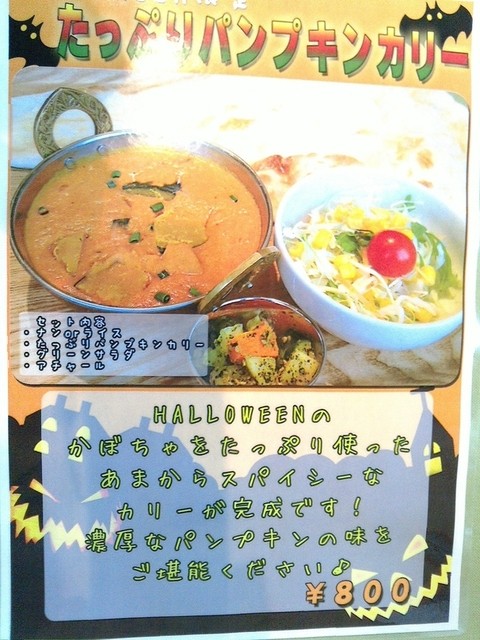 たっぷりパンプキンカリー
セット内容
・ナンorライス
・たっぷりパンプキンカリー
・グリーンサラダ
・アチャール
HALLOWEENの
かぼちゃをたっぷり使った
あまからスパイシーな
カリーが完成です!
濃厚なパンプキンの味を
ご堪能ください♪
¥800